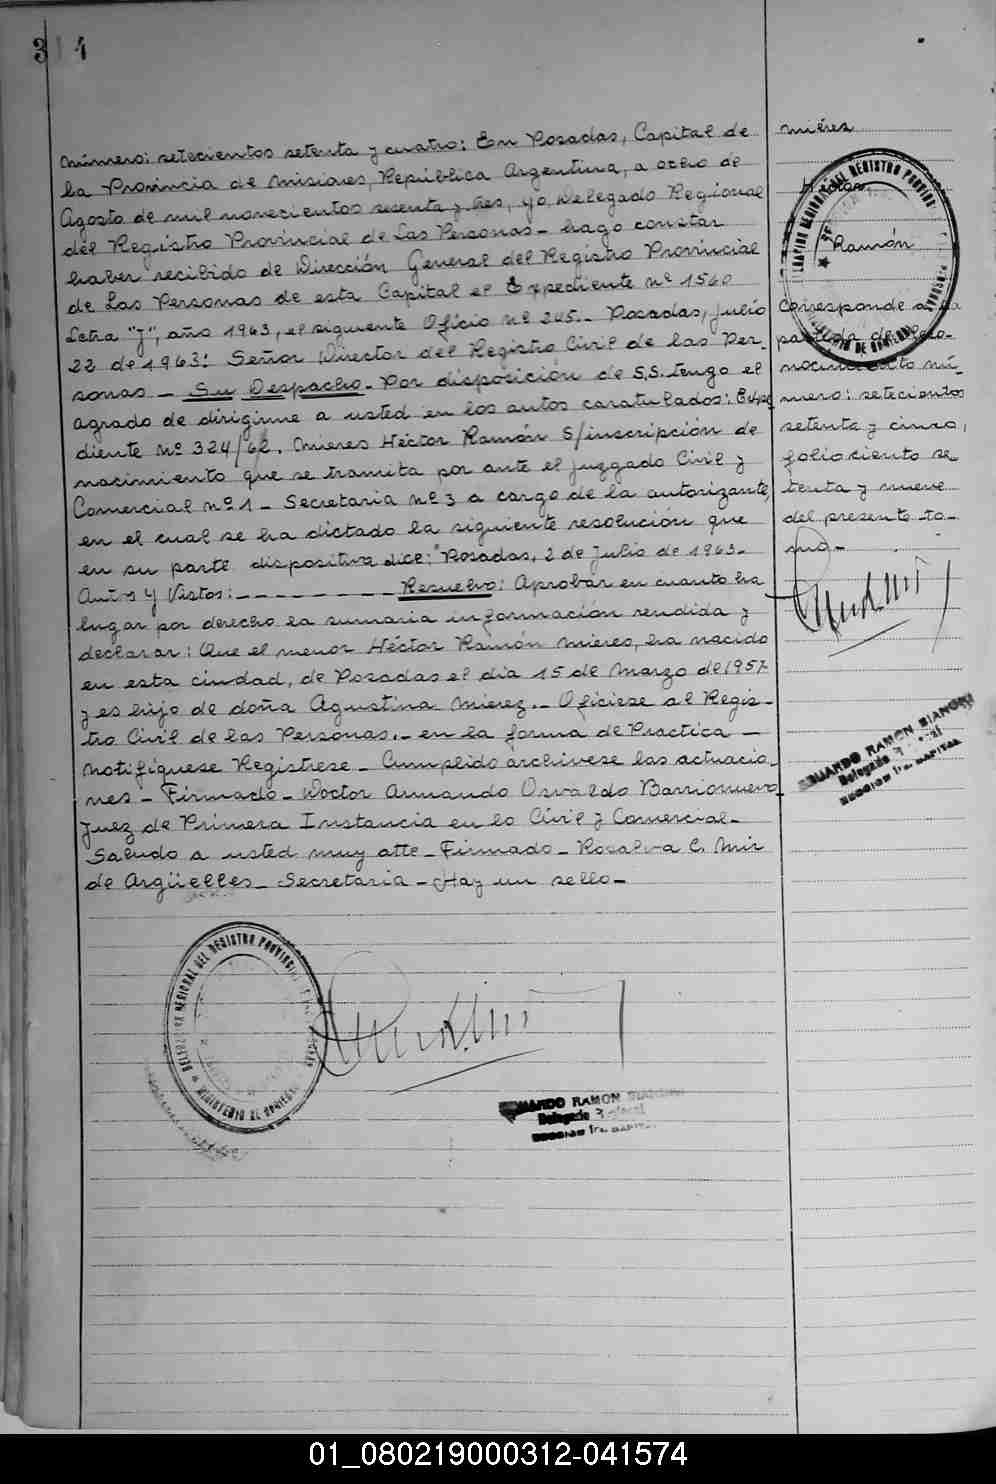 3 1 4
Número: setecientos setenta y cuatro: En Posadas, Capital de
la Provincia de Misiones, República Argentina, a ocho de
Agosto de mil novecientos sesenta y tres, yo, Delegado Regional
del Registro Provincial de Las Personas - hago constar
haber recibido de Dirección General del Registro Provincial
de Las Personas de esta Capital el Expediente nº 1560
Letra "J", año 1963, el siguiente Oficio nº 245.- Posadas, Julio
22 de 1963: Señor Director del Registro Civil de las Per-
sonas - Su Despacho - Por disposición de S.S. tengo el
agrado de dirigirme a usted en los autos caratulados: Expe
diente Nº 324/62. Mieres Héctor Ramón S/inscripción de
nacimiento que se tramita por ante el juzgado Civil y
Comercial nº 1 - Secretaria nº 3 a cargo de la autorizante,
en el cual se ha dictado la siguiente resolución que
en su parte dispositiva dice: "Posadas, 2 de Julio de 1963-
Autos y Vistos: - - - - - - - - - Resuelvo: Aprobar en cuanto ha
lugar por derecho la sumaria información rendida y
declarar: Que el menor Héctor Ramón Mieres, ha nacido
en esta ciudad, de Posadas el dia 15 de Marzo de 1957
y es hijo de doña Agustina Mierez.- Ofíciese al Regis-
tro Civil de las Personas.- en la forma de Practica -
Notifíquese Regístrese - Cumplido archívese las actuacio-
nes - Firmado - Doctor Armando Osvaldo Barrionuevo
Juez de Primera Instancia en lo Civil y Comercial -
Saludo a usted muy atte - Firmado - Rosalva C. Mir
de Argüelles - Secretaria - Hay un sello -
DELEGACION REGIONAL DEL REGISTRO PROVINCIAL
MINISTERIO DE GOBIERNO
EDUARDO RAMON BIANCHI
Delegado Regional
Mierez
Ramón
DELEGACION REGIONAL DEL REGISTRO PROVINCIAL
MINISTERIO DE GOBIERNO
Corresponde a la
partida de
nacimiento nú-
mero: setecientos
setenta y cinco,
folio ciento se
tenta y nueve
del presente to-
mo -
EDUARDO RAMON BIANCHI
Delegado Regional
01_080219000312-041574